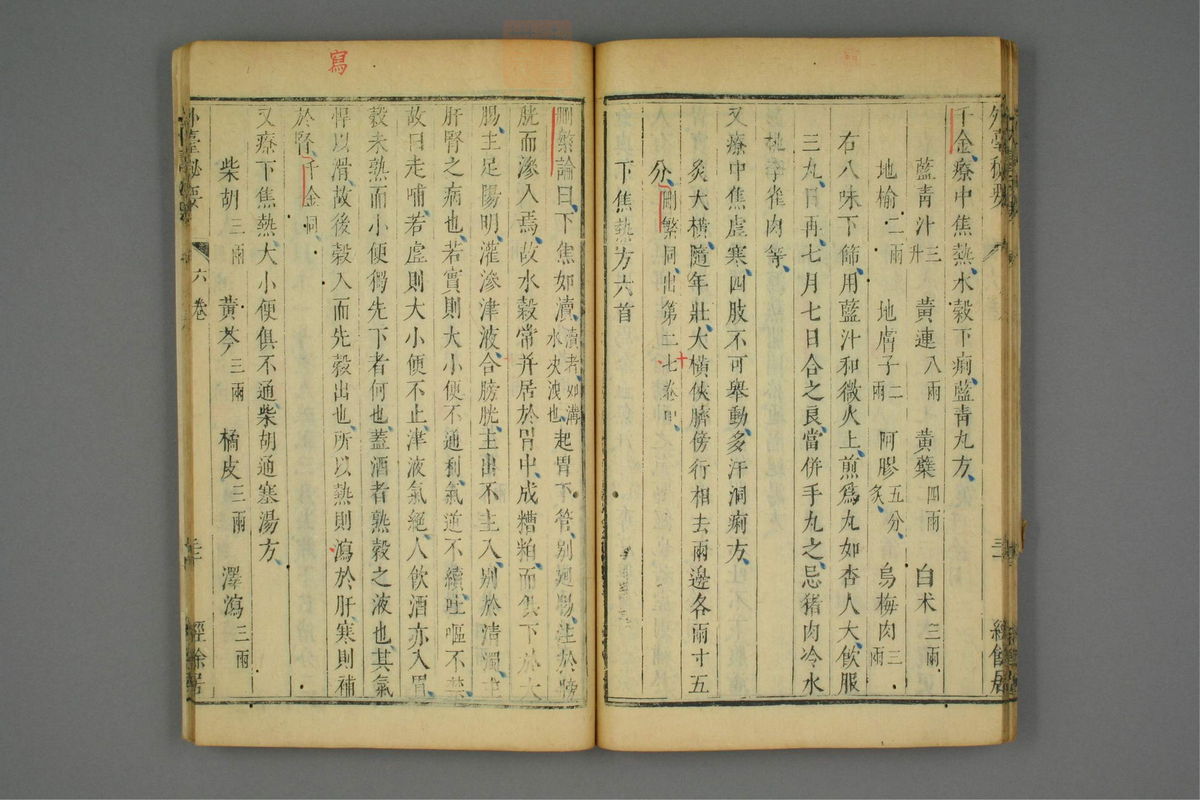 千金療中焦熱水穀下痢藍青丸方
藍青汁三升 黃連八兩 黃蘗四兩 白术三兩
地榆二兩 地膚子二兩 阿膠五分炙 烏梅肉三兩
右八味下篩用藍汁和微火上煎爲丸如杏人大飲服
三丸日再七月七日合之良當併手丸之忌猪肉冷水
桃李雀肉等
又療中焦虛寒四肢不可舉動多汗洞痢方
灸大橫隨年壯大橫俠臍傍行相去兩邊各兩寸五
分刪繁同出第二七卷中
下焦熱方六首
刪繁論曰下焦如瀆瀆者如溝水決洩也起胃下管別廻腸注於膀
胱而滲入焉故水穀常并居於胃中成糟粕而俱下於大
腸主足陽明灌滲津液合膀胱主出不主入別於清濁主
肝腎之病也若實則大小便不通利氣逆不續吐嘔不禁
故曰走哺若虛則大小便不止津液氣絕人飲酒亦入胃
穀未熟而小便獨先下者何也蓋酒者熟穀之液也其氣
悍以滑故後穀入而先穀出也所以熱則瀉於肝寒則補
於腎千金同
又療下焦熱大小便俱不通柴胡通塞湯方
柴胡三兩 黃芩三兩 橘皮三兩 澤瀉三兩
外臺秘要 六卷 三 經餘居
寫